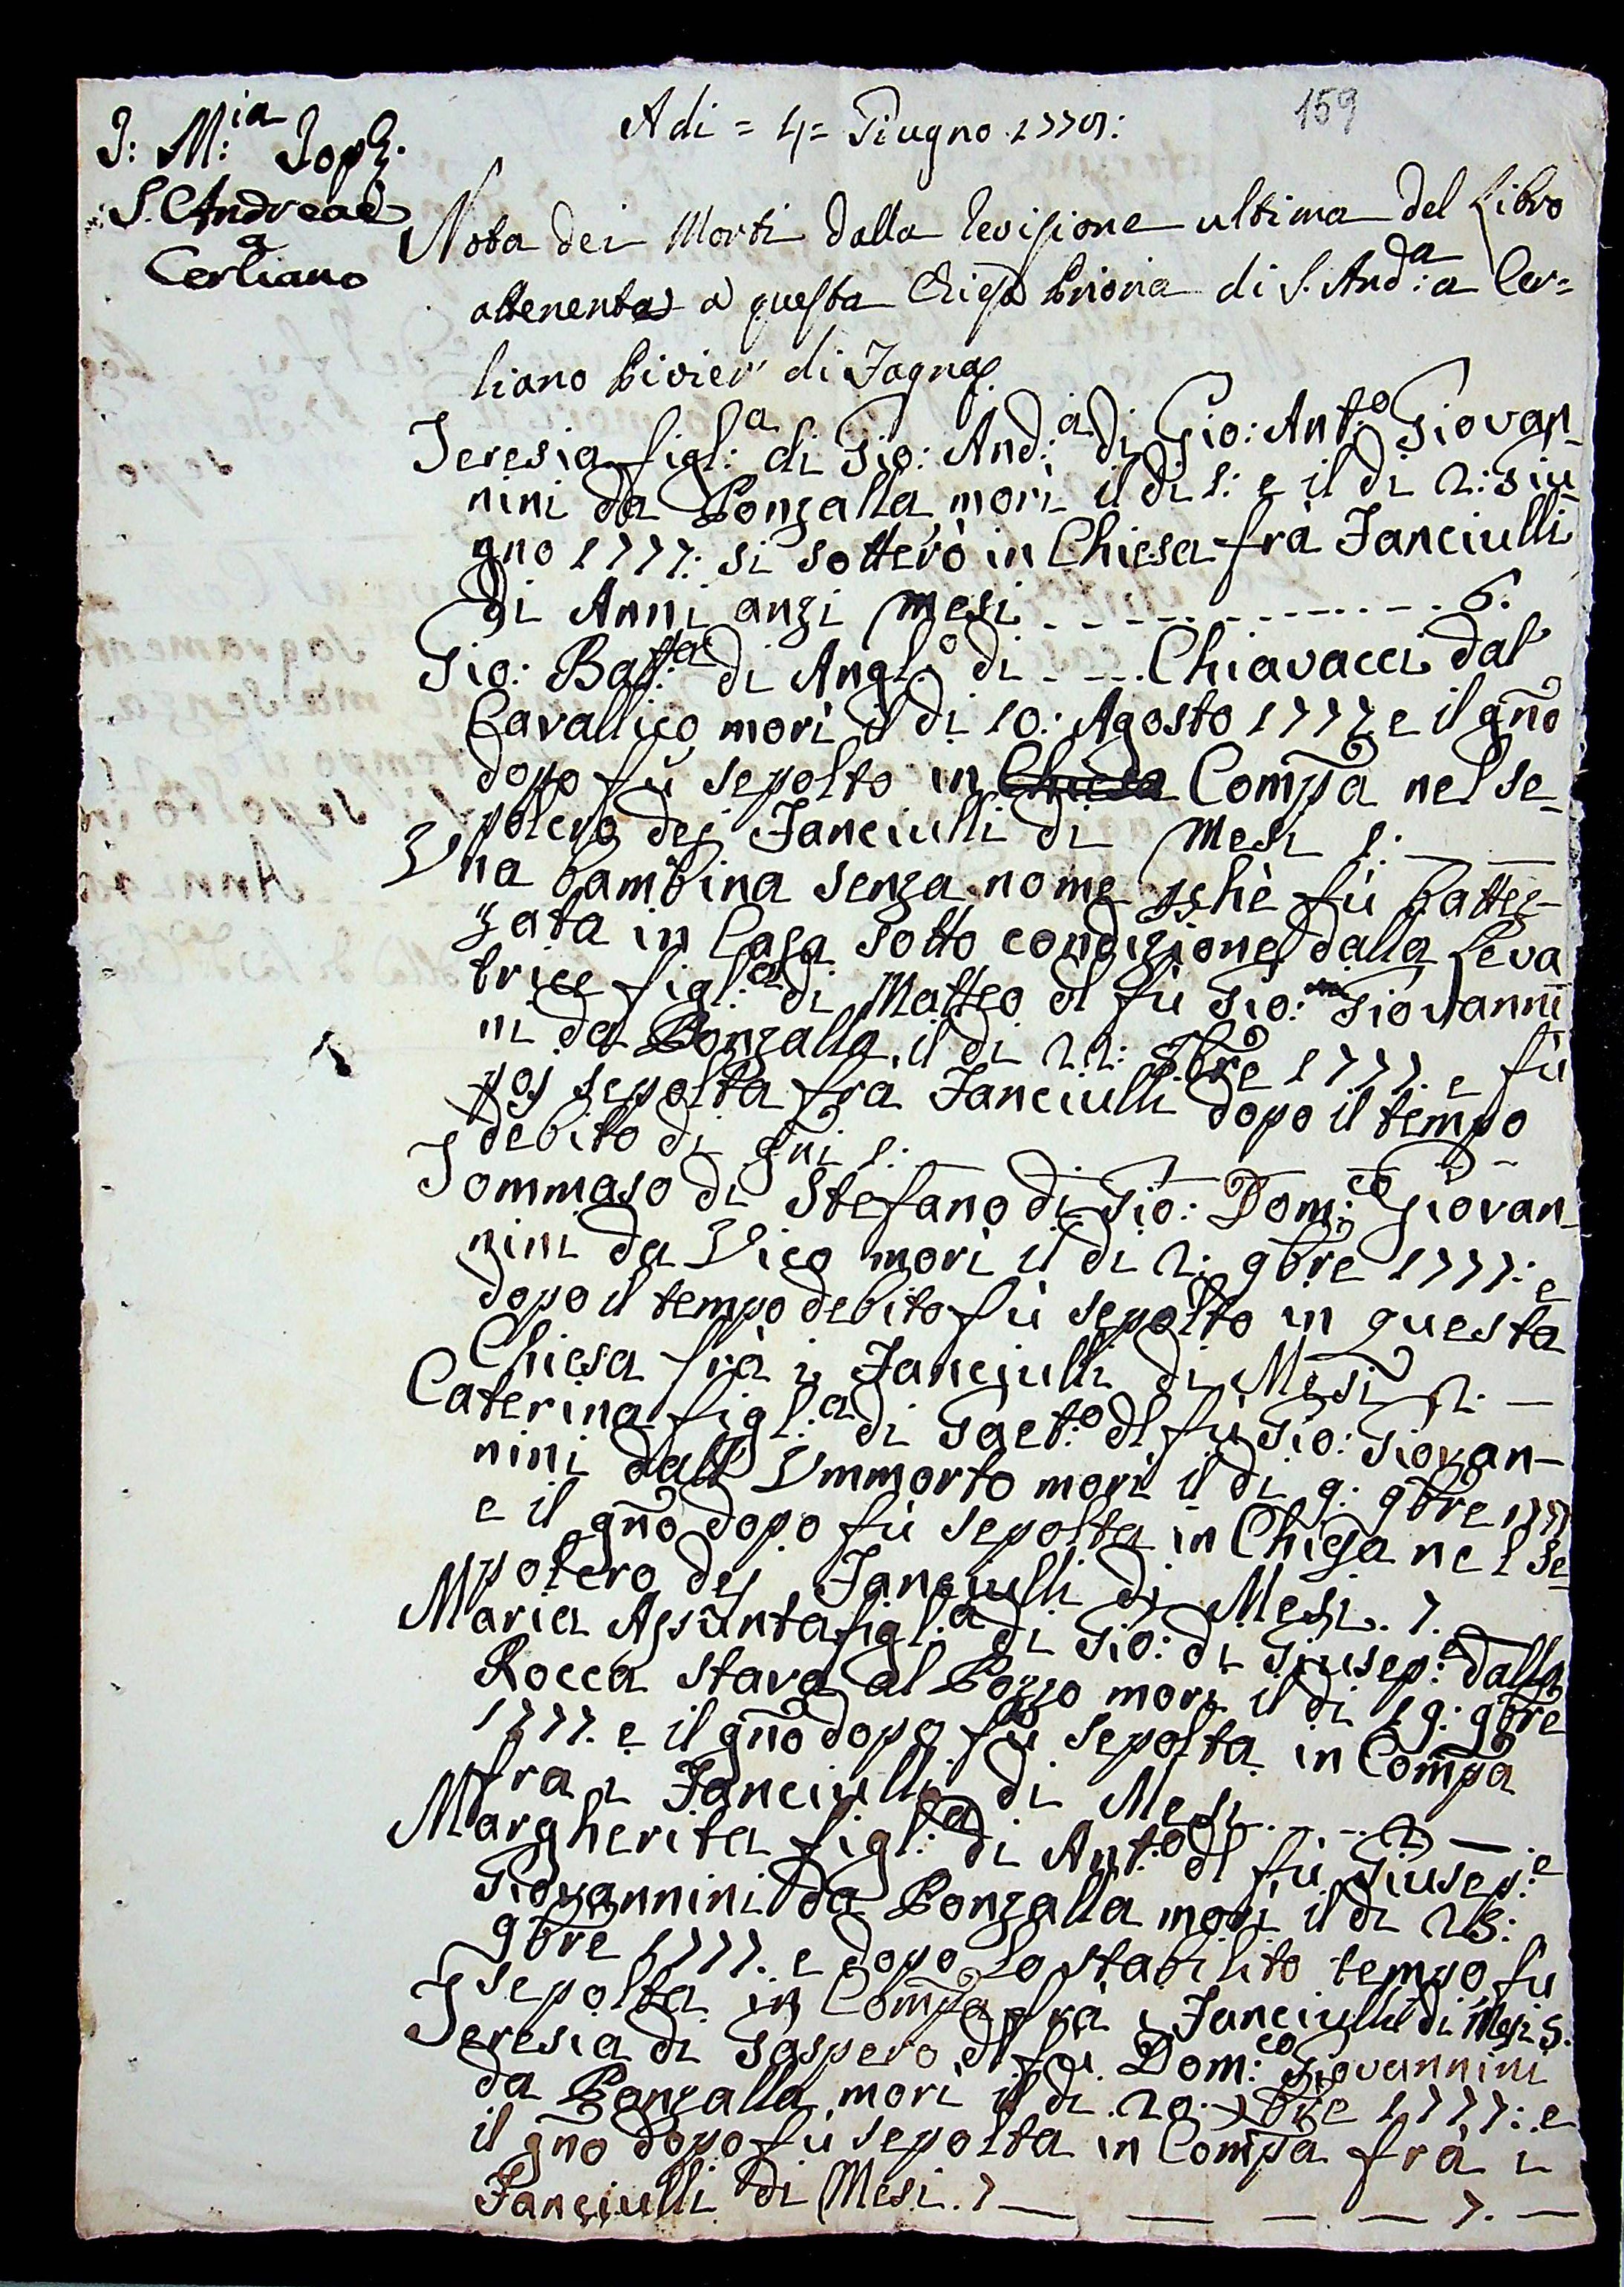 159
J: M:ia Joph.
S. Andreae
a
Cerliano
Adi = 4 = Giugno 1779:
Nota dei Morti dalla revisione ultima del Libro
attenente a questa Chiesa Prioria di S. And:a a Cer=
liano Pivier di Fagna
Teresia figl:a di Gio: And:a di Gio: Ant:o Giovan-
nini da Ponzalla morì il dì 1: e il dì 2: Giu
gno 1777: si sotterò in Chiesa frà Fanciulli
di Anni anzi mesi - - - - - - 6.
Gio: Batt:a di Angl:o di - - - Chiavacci dal
Cavallico morì il dì 10: Agosto 1777 e il gño
dopo fù sepolto in Chiesa Compã nel se-
polcro dei Fanciulli di Mesi 1. — —
Una bambina senza nome pchè fù battez-
zata in Casa sotto condizione dalla Leva
trice figl:a di Matteo dl fù Gio: Giovanni
ni da Ponzalla il dì 22: 7bre 1777. e fù
poi sepolta frà Fanciulli dopo il tempo
debito di gni 1: — — —
Tommaso di Stefano di Gio: Dom:co Giovan-
nini da Vico morì il dì 2: 9bre 1777: e
dopo il tempo debito fù sepolto in questa
Chiesa frà i Fanciulli di Mesi 2. —
Caterina figl:a di Gaet:o dl fù Gio: Giovan-
nini dall Ummorto morì il dì 9: 9bre 1777
e il gño dopo fù sepolta in Chiesa nel se-
polcro dei Fanciulli di Mesi. 7.
Maria Assunta figl:a di Gio: di Giusep:e dalla
Rocca stava al Pozzo morì il dì 19: 9bre
1777. e il gño dopo fù sepolta in Compã
fra i Fanciulli di Mesi - - - 2 —
Margherita figl:a di Ant:o dl fù Giusep:e
Giovannini da Ponzalla morì il dì 25:
9bre 1777. e dopo lo stabilito tempo fu
sepolta in Compã frà i Fanciulli di Mesi 5.
Teresia di Gaspero dl fù Dom:co Giovannini
da Ponzalla morì il dì 20. Xbre 1777: e
il gño dopo fù sepolta in Compã frà i
Fanciulli di Mesi. 7 — — — — 7. —